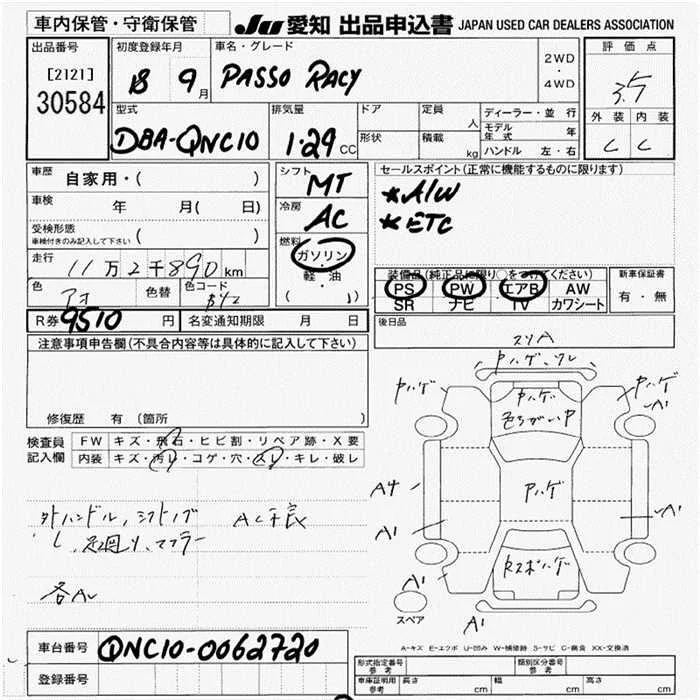 車内保管・守衛保管
JU 愛知 出品申込書 JAPAN USED CAR DEALERS ASSOCIATION
出品番号
[2121]
30584
初度登録年月
18 9月
車名・グレード
PASSO RACY
2WD
・
4WD
評価点
3.5
外装 内装
C C
型式
DBA-QNC10
排気量
1.29 CC
ドア
形状
定員
人
積載
kg
ディーラー・並行
モデル年式 年
ハンドル 左・右
車歴 自家用・( )
車検 年 月( 日)
受検形態
車検付きのみ記入して下さい ( )
走行 11万2千890km
色 アオ 色替 色コード B42
R券 9510 円 名変通知期限 月 日
シフト
MT
冷房
AC
燃料
ガソリン
軽・油
( )
セールスポイント(正常に機能するものに限ります)
*A/W
*ETC
装備品(純正品に限り○をつけてください)
PS PW エアB AW
SR ナビ TV カワシート
新車保証書
有・無
後日品
注意事項申告欄(不具合内容等は具体的に記入して下さい)
修復歴 有 〔箇所
検査員
記入欄
FW キズ・飛石・ヒビ割・リペア跡・X要
内装 キズ・汚レ・コゲ・穴・スレ・キレ・破レ
外ハンドル,シフトノブ AC不良
し,足廻り,マフラー
各A
スリA
Pハゲ,ワレ
Pハゲ
Pハゲ
A1
Pハゲ
色ちがいP
Pハゲ
A4
A1
A1
RスポハゲI
A1
A1
スペア
A-キズ E-エクボ U-凹み W-補修跡 S-サビ C-腐食 XX-交換済
車台番号 QNC10-0062720
登録番号
形式指定番号 参考
類別区分番号 参考
車庫証明用 参考 長さ cm 幅 cm 高さ cm